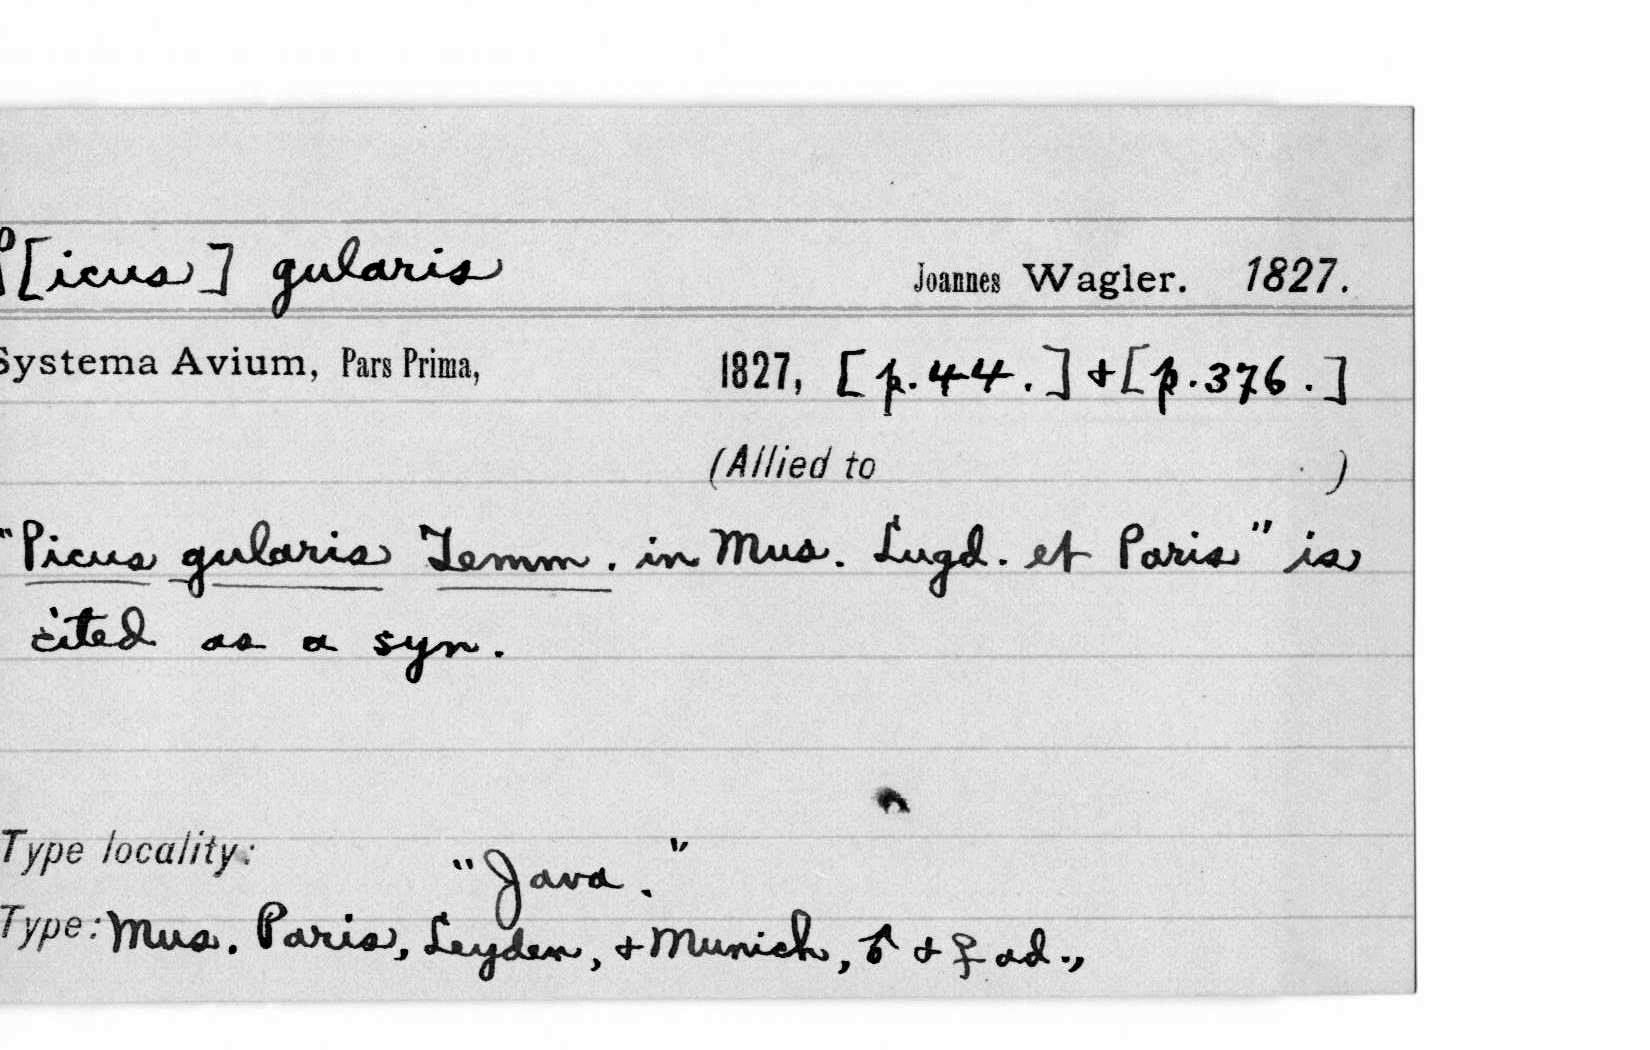 P[icus] gularis Joannes Wagler. 1827.
Systema Avium, Pars Prima, 1827, [p.44.] + [p.376.]
(Allied to . )
"Picus gularis Temm. in Mus. Lugd. et Paris" is
cited as a syn.
Type locality: "Java."
Type: Mus. Paris, Leyden, + Munich, ♂ + ♀ ad.,